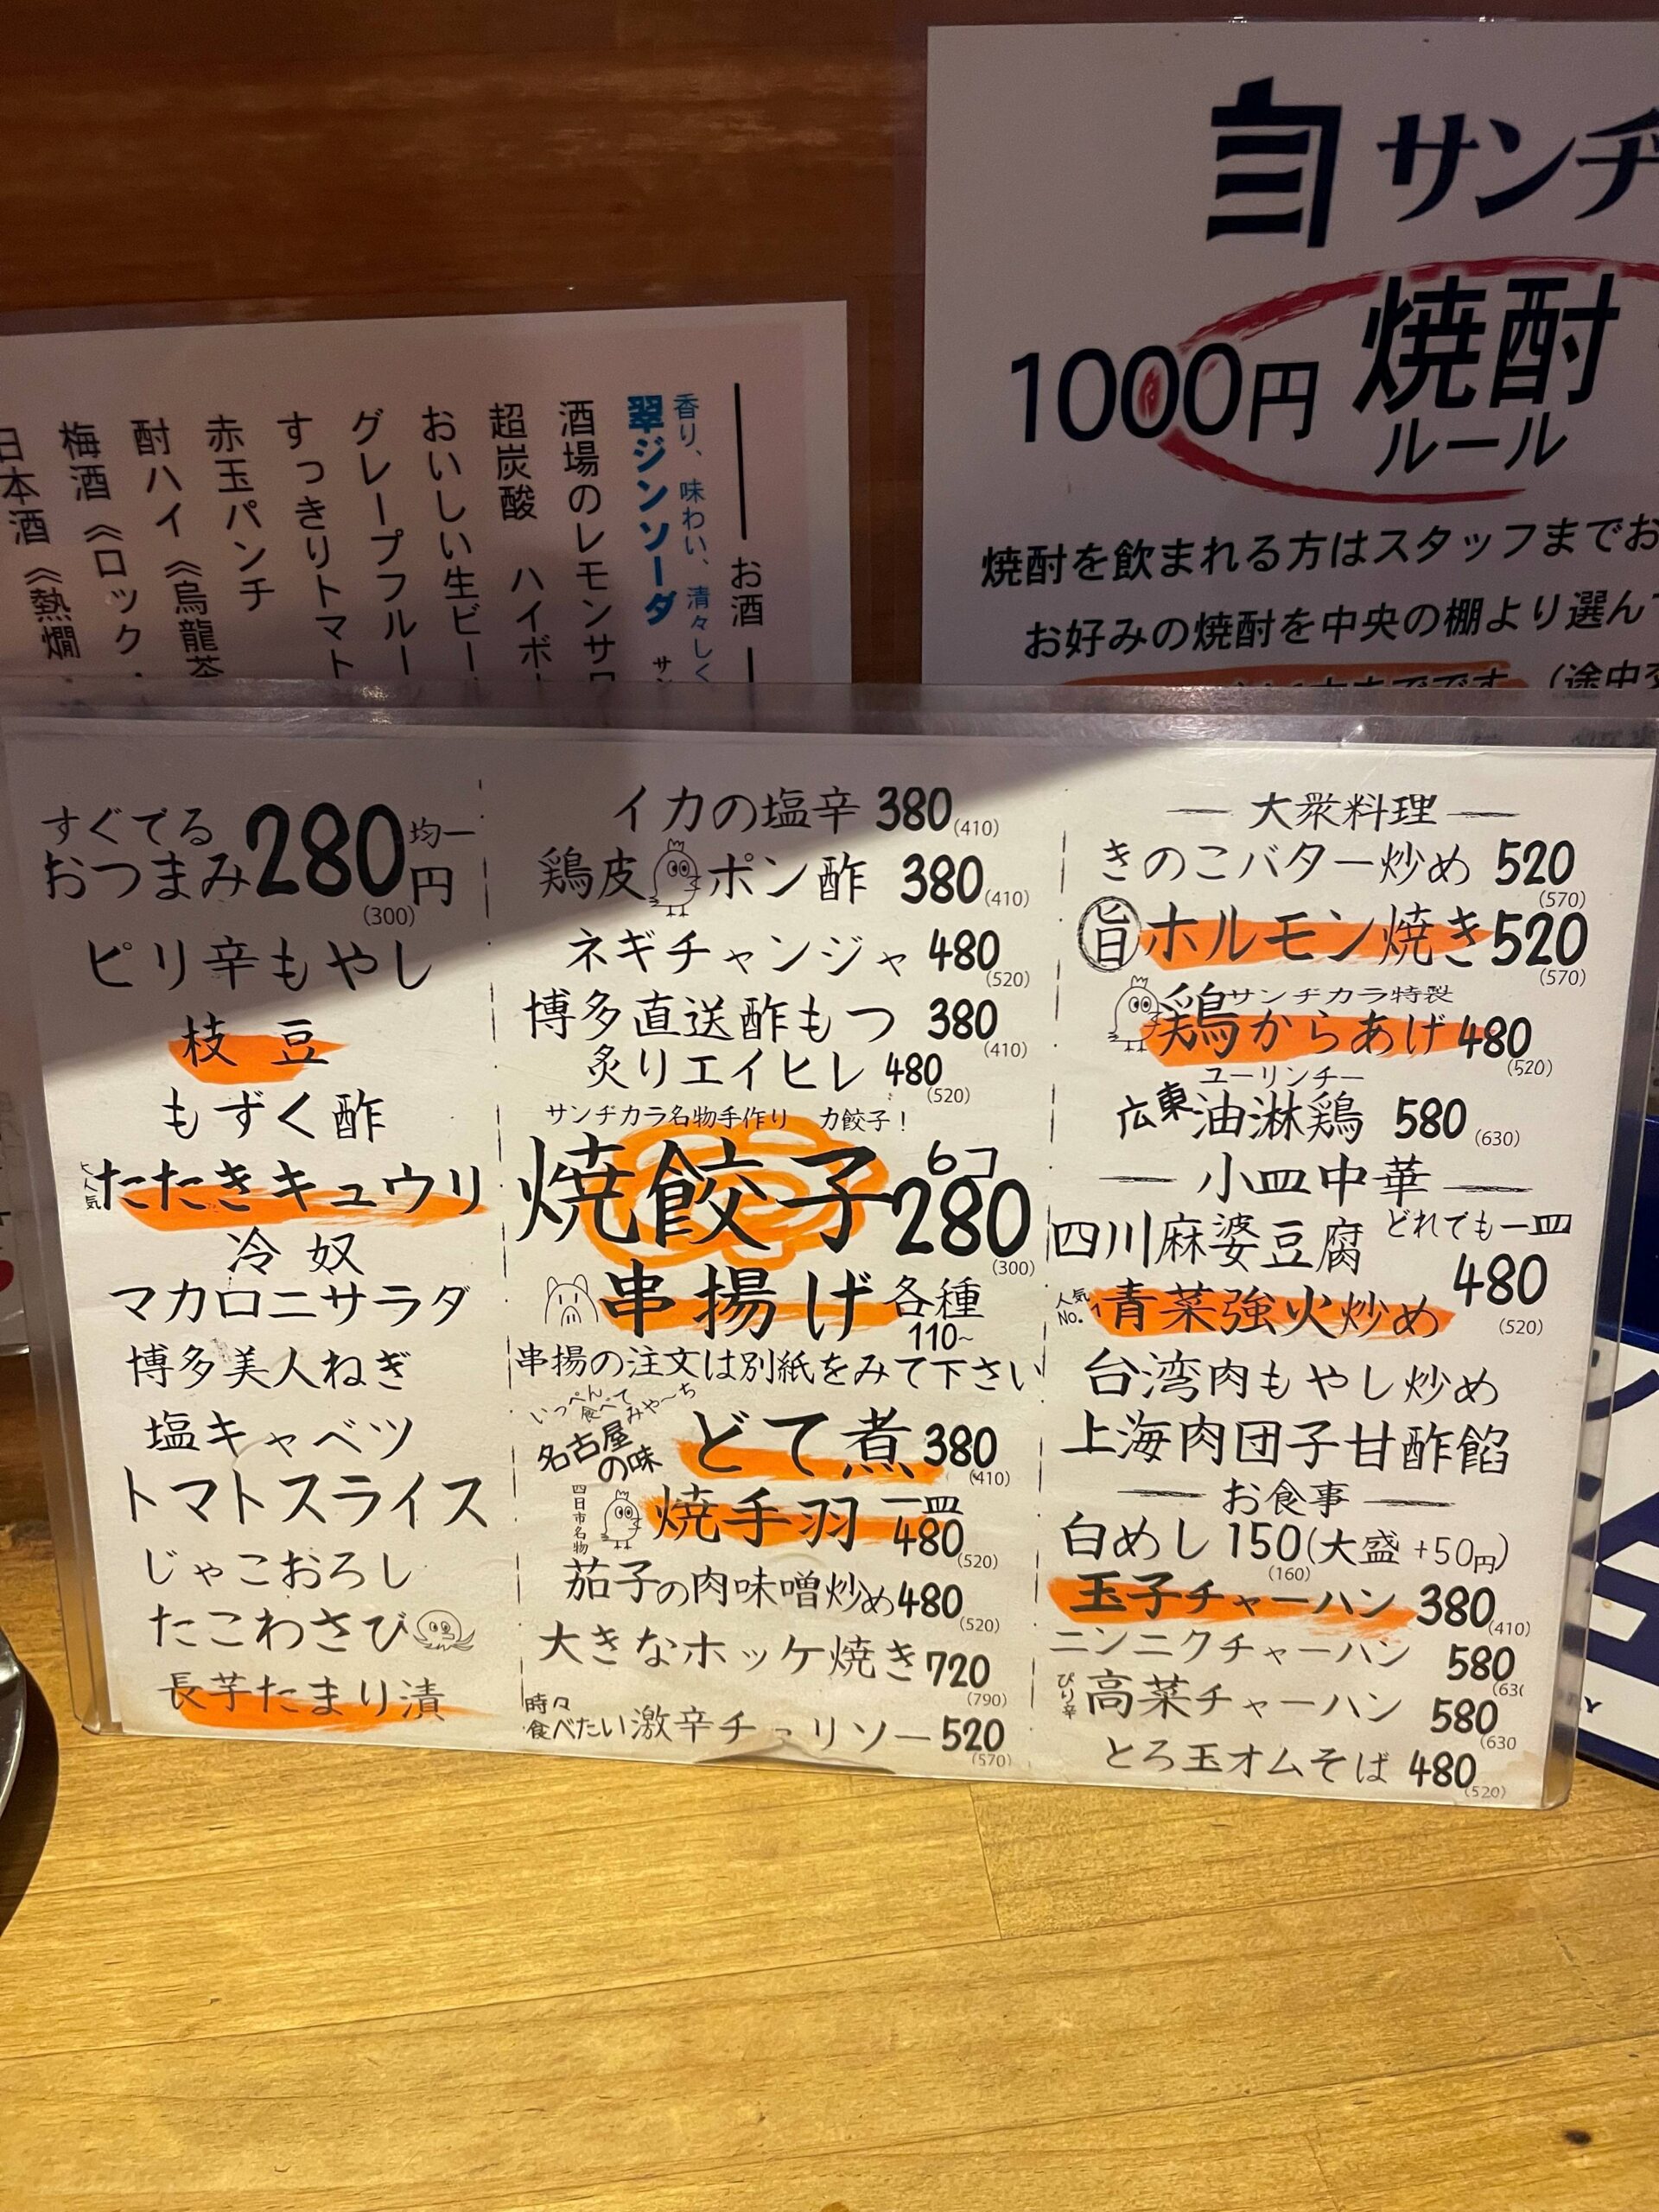 サンヂ
1000円 焼酎
ルール
焼酎を飲まれる方はスタッフまでお
お好みの焼酎を中央の棚より選んで
(途中
お酒
香り、味わい、清々しく
翠ジンソーダ
酒場のレモンサ
超炭酸 ハイボ
おいしい生ビー
グレープフルー
すっきりトマト
赤玉パンチ
酎ハイ《烏龍茶
梅酒《ロック・
日本酒《熱燗・
すぐでる
おつまみ280円均一
(300)
ピリ辛もやし
枝豆
もずく酢
大人気 たたきキュウリ
冷奴
マカロニサラダ
博多美人ねぎ
塩キャベツ
トマトスライス
じゃこおろし
たこわさび
長芋たまり漬
イカの塩辛 380(410)
鶏皮ポン酢 380(410)
ネギチャンジャ 480(520)
博多直送酢もつ 380(410)
炙りエイヒレ 480(520)
サンヂカラ名物手作り 力餃子!
焼餃子 6コ 280(300)
串揚げ 各種 110~
串揚の注文は別紙をみて下さい
いっぺん食べてみや~ち
名古屋の味 どて煮 380(410)
四日市名物 焼手羽 一皿 480(520)
茄子の肉味噌炒め 480(520)
大きなホッケ焼き 720(790)
時々食べたい激辛チョリソー 520(570)
大衆料理
きのこバター炒め 520(570)
旨 ホルモン焼き 520(570)
サンヂカラ特製
鶏からあげ 480(520)
ユーリンチー
広東油淋鶏 580(630)
小皿中華
四川麻婆豆腐 どれでも一皿
480(520)
人気No.1 青菜強火炒め
台湾肉もやし炒め
上海肉団子甘酢餡
お食事
白めし 150(大盛+50円)
(160)
玉子チャーハン 380(410)
ニンニクチャーハン 580(630
ぴり辛 高菜チャーハン 580(630
とろ玉オムそば 480(520)